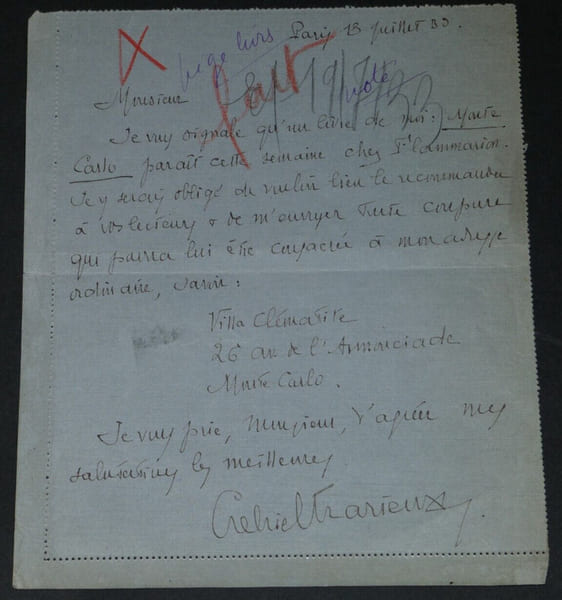 Paris 13 Juillet 33.
fait
19/7/33
note
Monsieur
Je vous signale qu'un livre de moi : Monte
Carlo paraît cette semaine chez Flammarion.
Je vous serais obligé de vouloir bien le recommander
à vos lecteurs & de m'envoyer toute coupure
qui pourra lui être consacrée à mon adresse
ordinaire, savoir :
Villa Clématite
26 av. de l'Annonciade
Monte Carlo.
Je vous prie, Monsieur, d'agréer mes
salutations les meilleures
Gabriel Trarieux